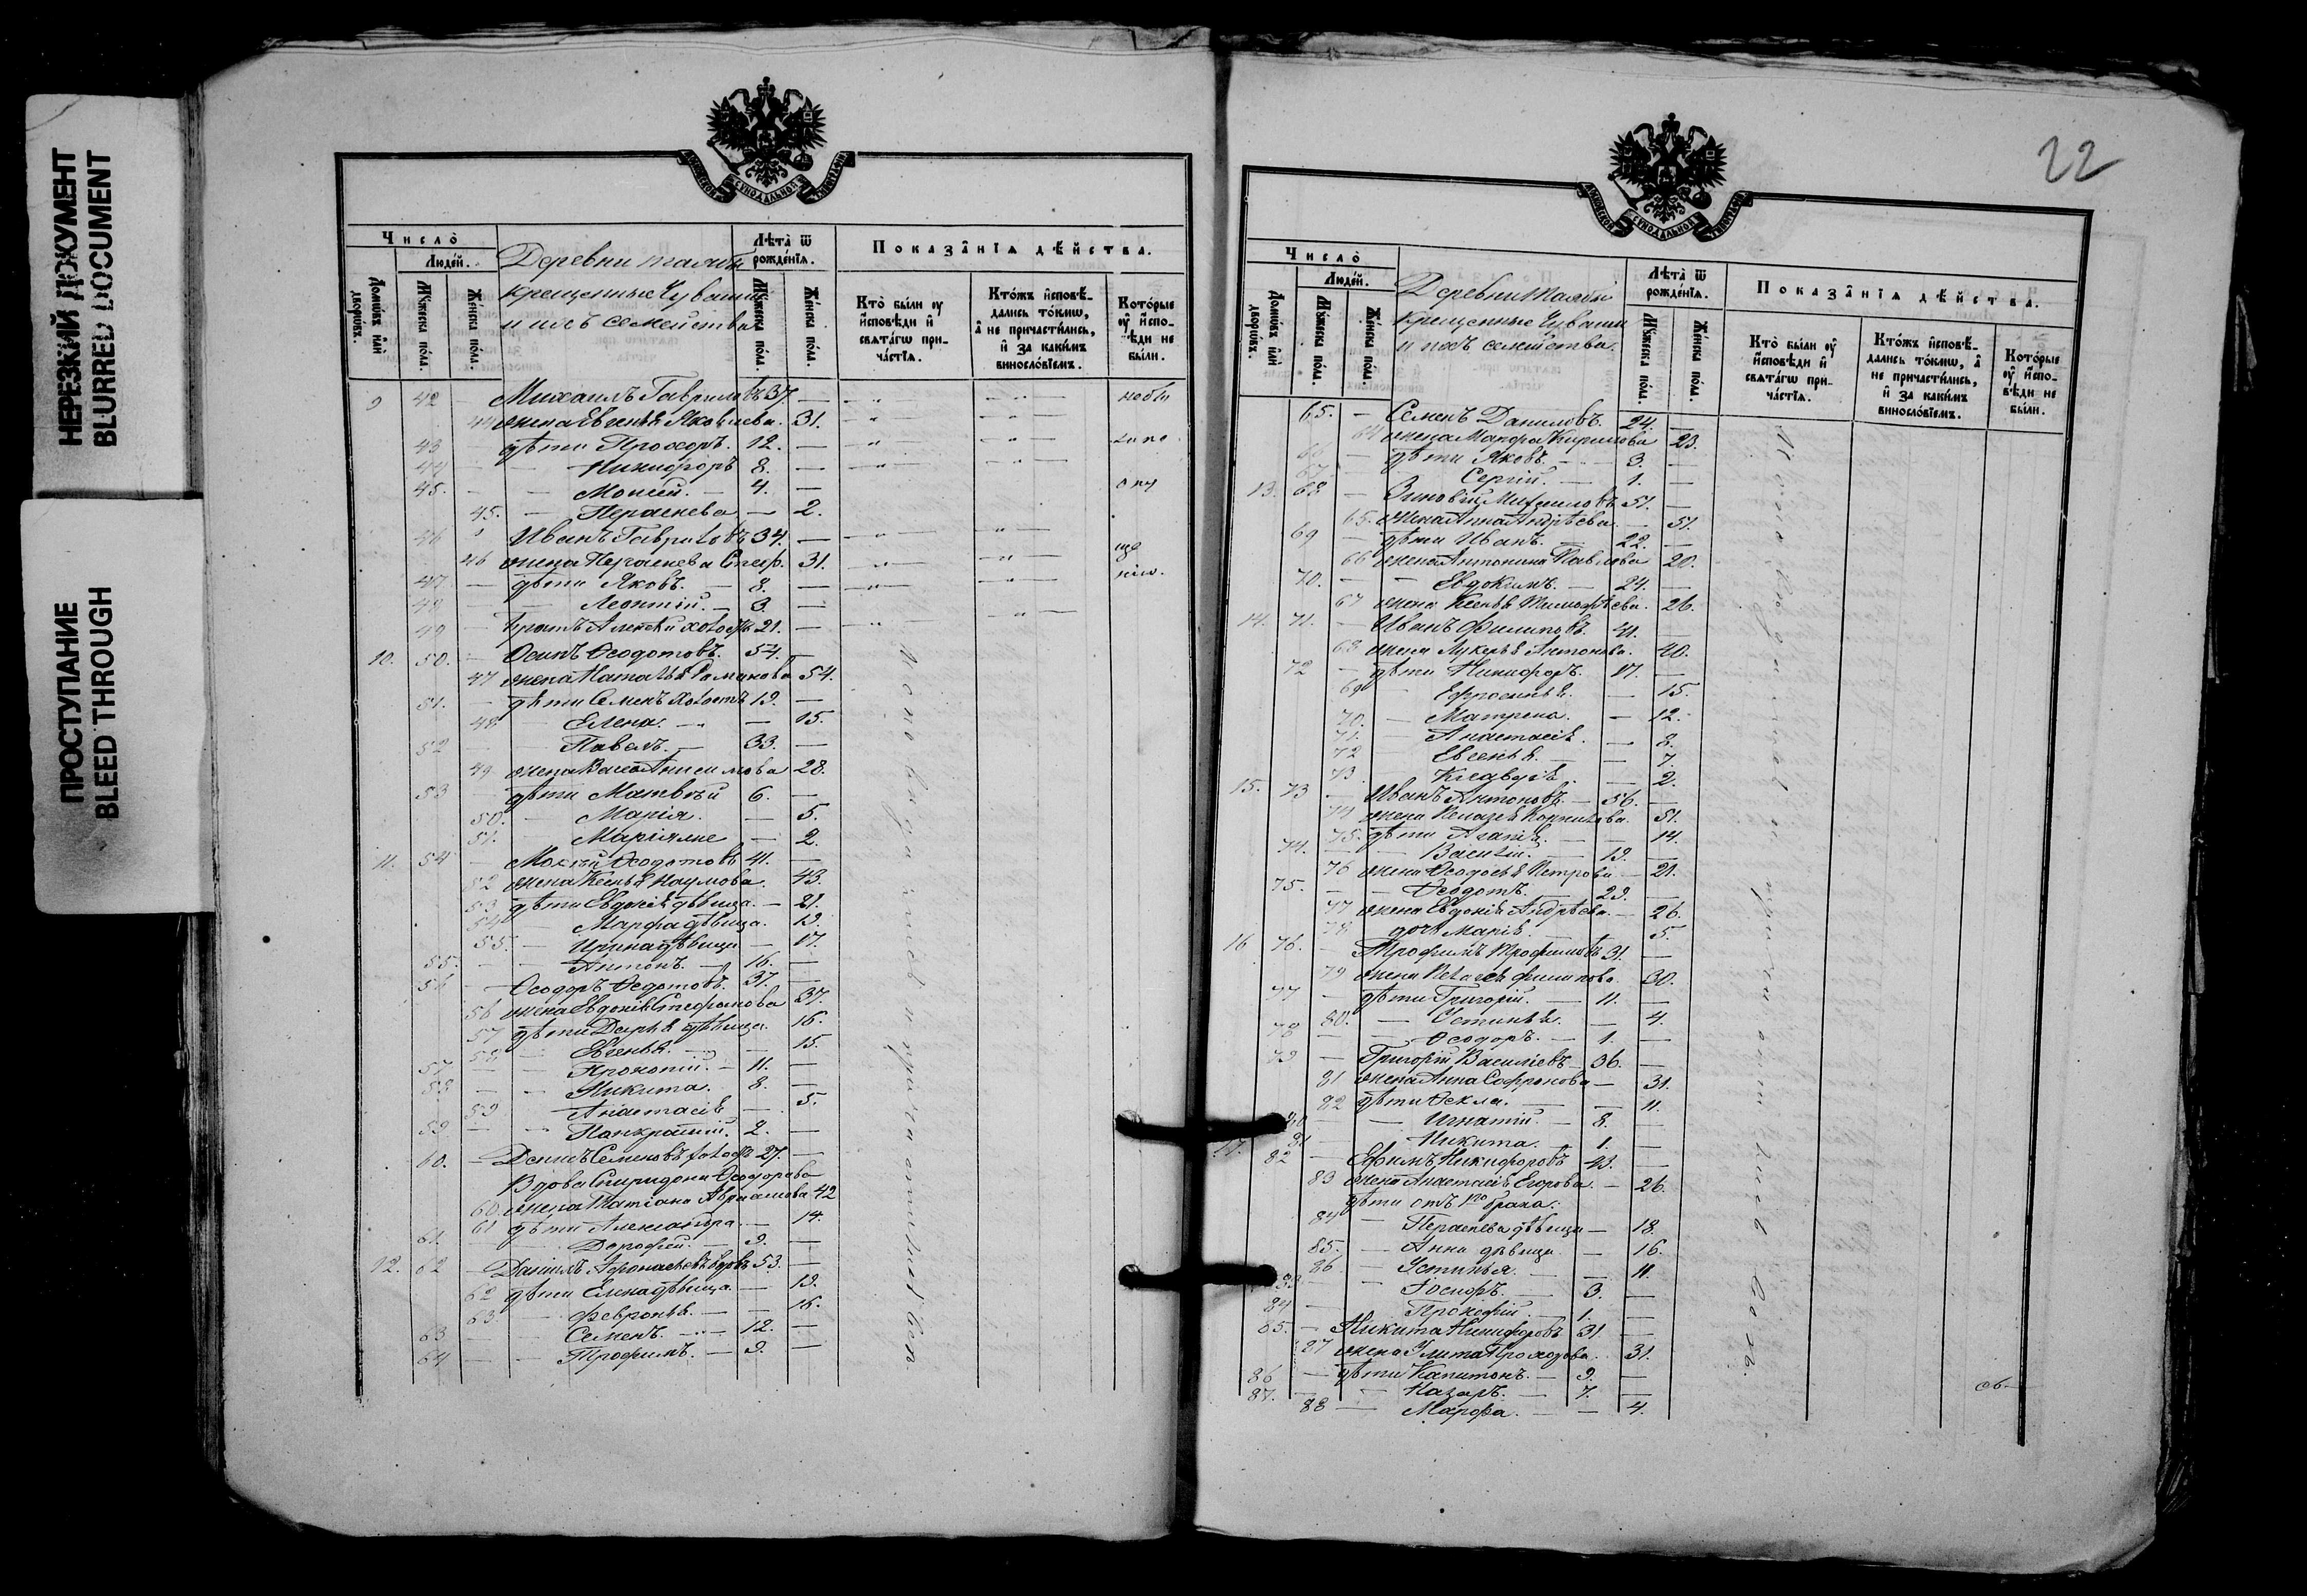 НЕРЕЗКИЙ ДОКУМЕНТ
BLURRED DOCUMENT
ПРОСТУПАНИЕ
BLEED THROUGH
Число̀
Люде́й.
Домѡ́въ и҆лѝ дворѡ́въ.
Мꙋ́жеска по́ла.
Же́нска по́ла.
Деревни
крещенные Чуваши
и ихъ семейства
Лѣта̀ ѿ рожде́нїѧ.
Мꙋ́жеска по́ла.
Же́нска по́ла.
Показа̑нїѧ дѣ́йства.
Кто̀ бы́ли ѹ҆ и҆сповѣ́ди и҆ свѧта́гѡ прича́стїѧ.
Кто́жъ и҆сповѣ́дались то́кмѡ, а҆ не причасти́лись, и҆ за каки́мъ виносло́вїемъ.
Кото́рые ѹ҆ и҆сповѣ́ди не бы́ли.
9 42 — Михаилъ Гавриловъ 37 —
44 жена Евгенья Яковлева. 31.
43 — дѣти Прохоръ. 12. —
44 — Никифоръ 8. —
45. — Моисей. — 4. —
45. — Параскева — 2.
46 Иванъ Гавриловъ 34. —
46 жена Параскева Стеф. 31.
47 — дѣти Яковъ. — 8. —
48 — Леонтій. — 3. —
49 — братъ Алексѣй холостъ 21. —
10. 50. — Осипъ Ѳеодотовъ. 57. —
47 жена Наталья Романова 54.
51. — дѣти Семенъ холостъ 19. —
48 — Елена. — 15.
52 — Павелъ. — 33. —
49 жена Васса Анисимова 28.
53 — дѣти Матвѣй 6. —
50. — Марія. — 5.
51. — Маріямне — 2.
11. 54 — Мокій Ѳеодотовъ 41. —
52 жена Ксенья Наумова. 43.
53 дѣти Евдокія дѣвица. — 21.
54 — Марфа дѣвица. 19.
55. — Ирина дѣвица — 17.
55. — Антонъ. — 16. —
56 — Ѳеодоръ Ѳедотовъ. 37. —
56 жена Евдокія Стефанова 37.
57 дѣти Дарья дѣвица. 16.
58 — Евгенья. — 15.
57. — Прокопій. — 11. —
58 — Никита. 8. —
59 — Анастасія — 5.
59 — Панкратій. 2. —
60. — Денисъ Семеновъ холостъ 27. —
Вдова Спиридона Ѳеодорова
60. жена Татіана Авраамова 42
61 дѣти Александра. — 14.
61. — Дорофей. — 9. —
12. 62 — Даніилъ Афонасьевъ вдовъ 53. —
62 дѣти Елена дѣвица. — 19.
63 — Февронья. — 16.
63 — Семенъ. — 12. —
64 — Трофимъ. — 9. —
Исповѣдались и причастились
22
Число̀
Люде́й.
Домѡ́въ и҆лѝ дворѡ́въ.
Мꙋ́жеска по́ла.
Же́нска по́ла.
Деревни
крещенные Чуваши
и ихъ семейства.
Лѣта̀ ѿ рожде́нїѧ.
Мꙋ́жеска по́ла.
Же́нска по́ла.
Показа̑нїѧ дѣ́йства.
Кто̀ бы́ли ѹ҆ и҆сповѣ́ди и҆ свѧта́гѡ прича́стїѧ.
Кто́жъ и҆сповѣ́дались то́кмѡ, а҆ не причасти́лись, и҆ за каки́мъ виносло́вїемъ.
Кото́рые ѹ҆ и҆сповѣ́ди не бы́ли.
65. — Семенъ Даниловъ. 24. —
64 жена Марфа Кирилова 23.
66 — дѣти Яковъ. — 3. —
67 — Сергій. — 1. —
13. 68 — Зиновій Михаиловъ 51. —
65. жена Анна Андрѣева. — 51.
69 — дѣти Иванъ. — 22. —
66 жена Антонина Павлова 20.
70. — Евдокимъ. — 24. —
67 жена Ксенья Тимофѣева. 26.
14. 71. — Иванъ Филиповъ. 41. —
68 жена Лукерья Антонова. 40.
72 — дѣти Никифоръ. 17. —
69 — Ефросинья. — 15.
70. — Матрена. — 12.
71. — Анастасія. — 8.
72 — Евгенья. — 7.
73. — Клавдія. — 2.
15. 73 — Иванъ Антоновъ. — 56. —
74 жена Пелагея Корнилова. 51.
75. дѣти Агапія. — 14.
74. — Василій. — 19. —
76 жена Ѳеодосья Петрова — 21.
75. — Ѳеодотъ. — 29. —
77 жена Евдокія Андрѣева. — 26.
78 дочь Марія. 5.
16 76. — Трофимъ Трофимовъ 31. —
79 жена Пелагея Филипова. 30.
77 — дѣти Григорій. — 11. —
80. — Устинья. — 4.
78 — Ѳеодоръ. — 1. —
79 — Григорій Василіевъ — 36. —
81 жена Анна Софронова — 31.
82 дѣти Ѳекла. — 11.
80 — Игнатій. — 8. —
81 — Никита. — 1. —
17. 82 — Ефимъ Никифоровъ 43. —
83 жена Анастасія Егорова. — 26.
дѣти отъ 1го брака.
84 — Параскева дѣвица — 18.
85. — Анна дѣвица. — 16.
86 — Устинья. — 11.
83 — Іосифъ. — 3. —
84 — Прокофій. — 1. —
85. — Никита Никифоровъ 31. —
87 жена Улита Прохорова. 31.
86 — дѣти Капитонъ. — 9. —
87. — Назаръ. — 7. —
88 — Марфа. — 4.